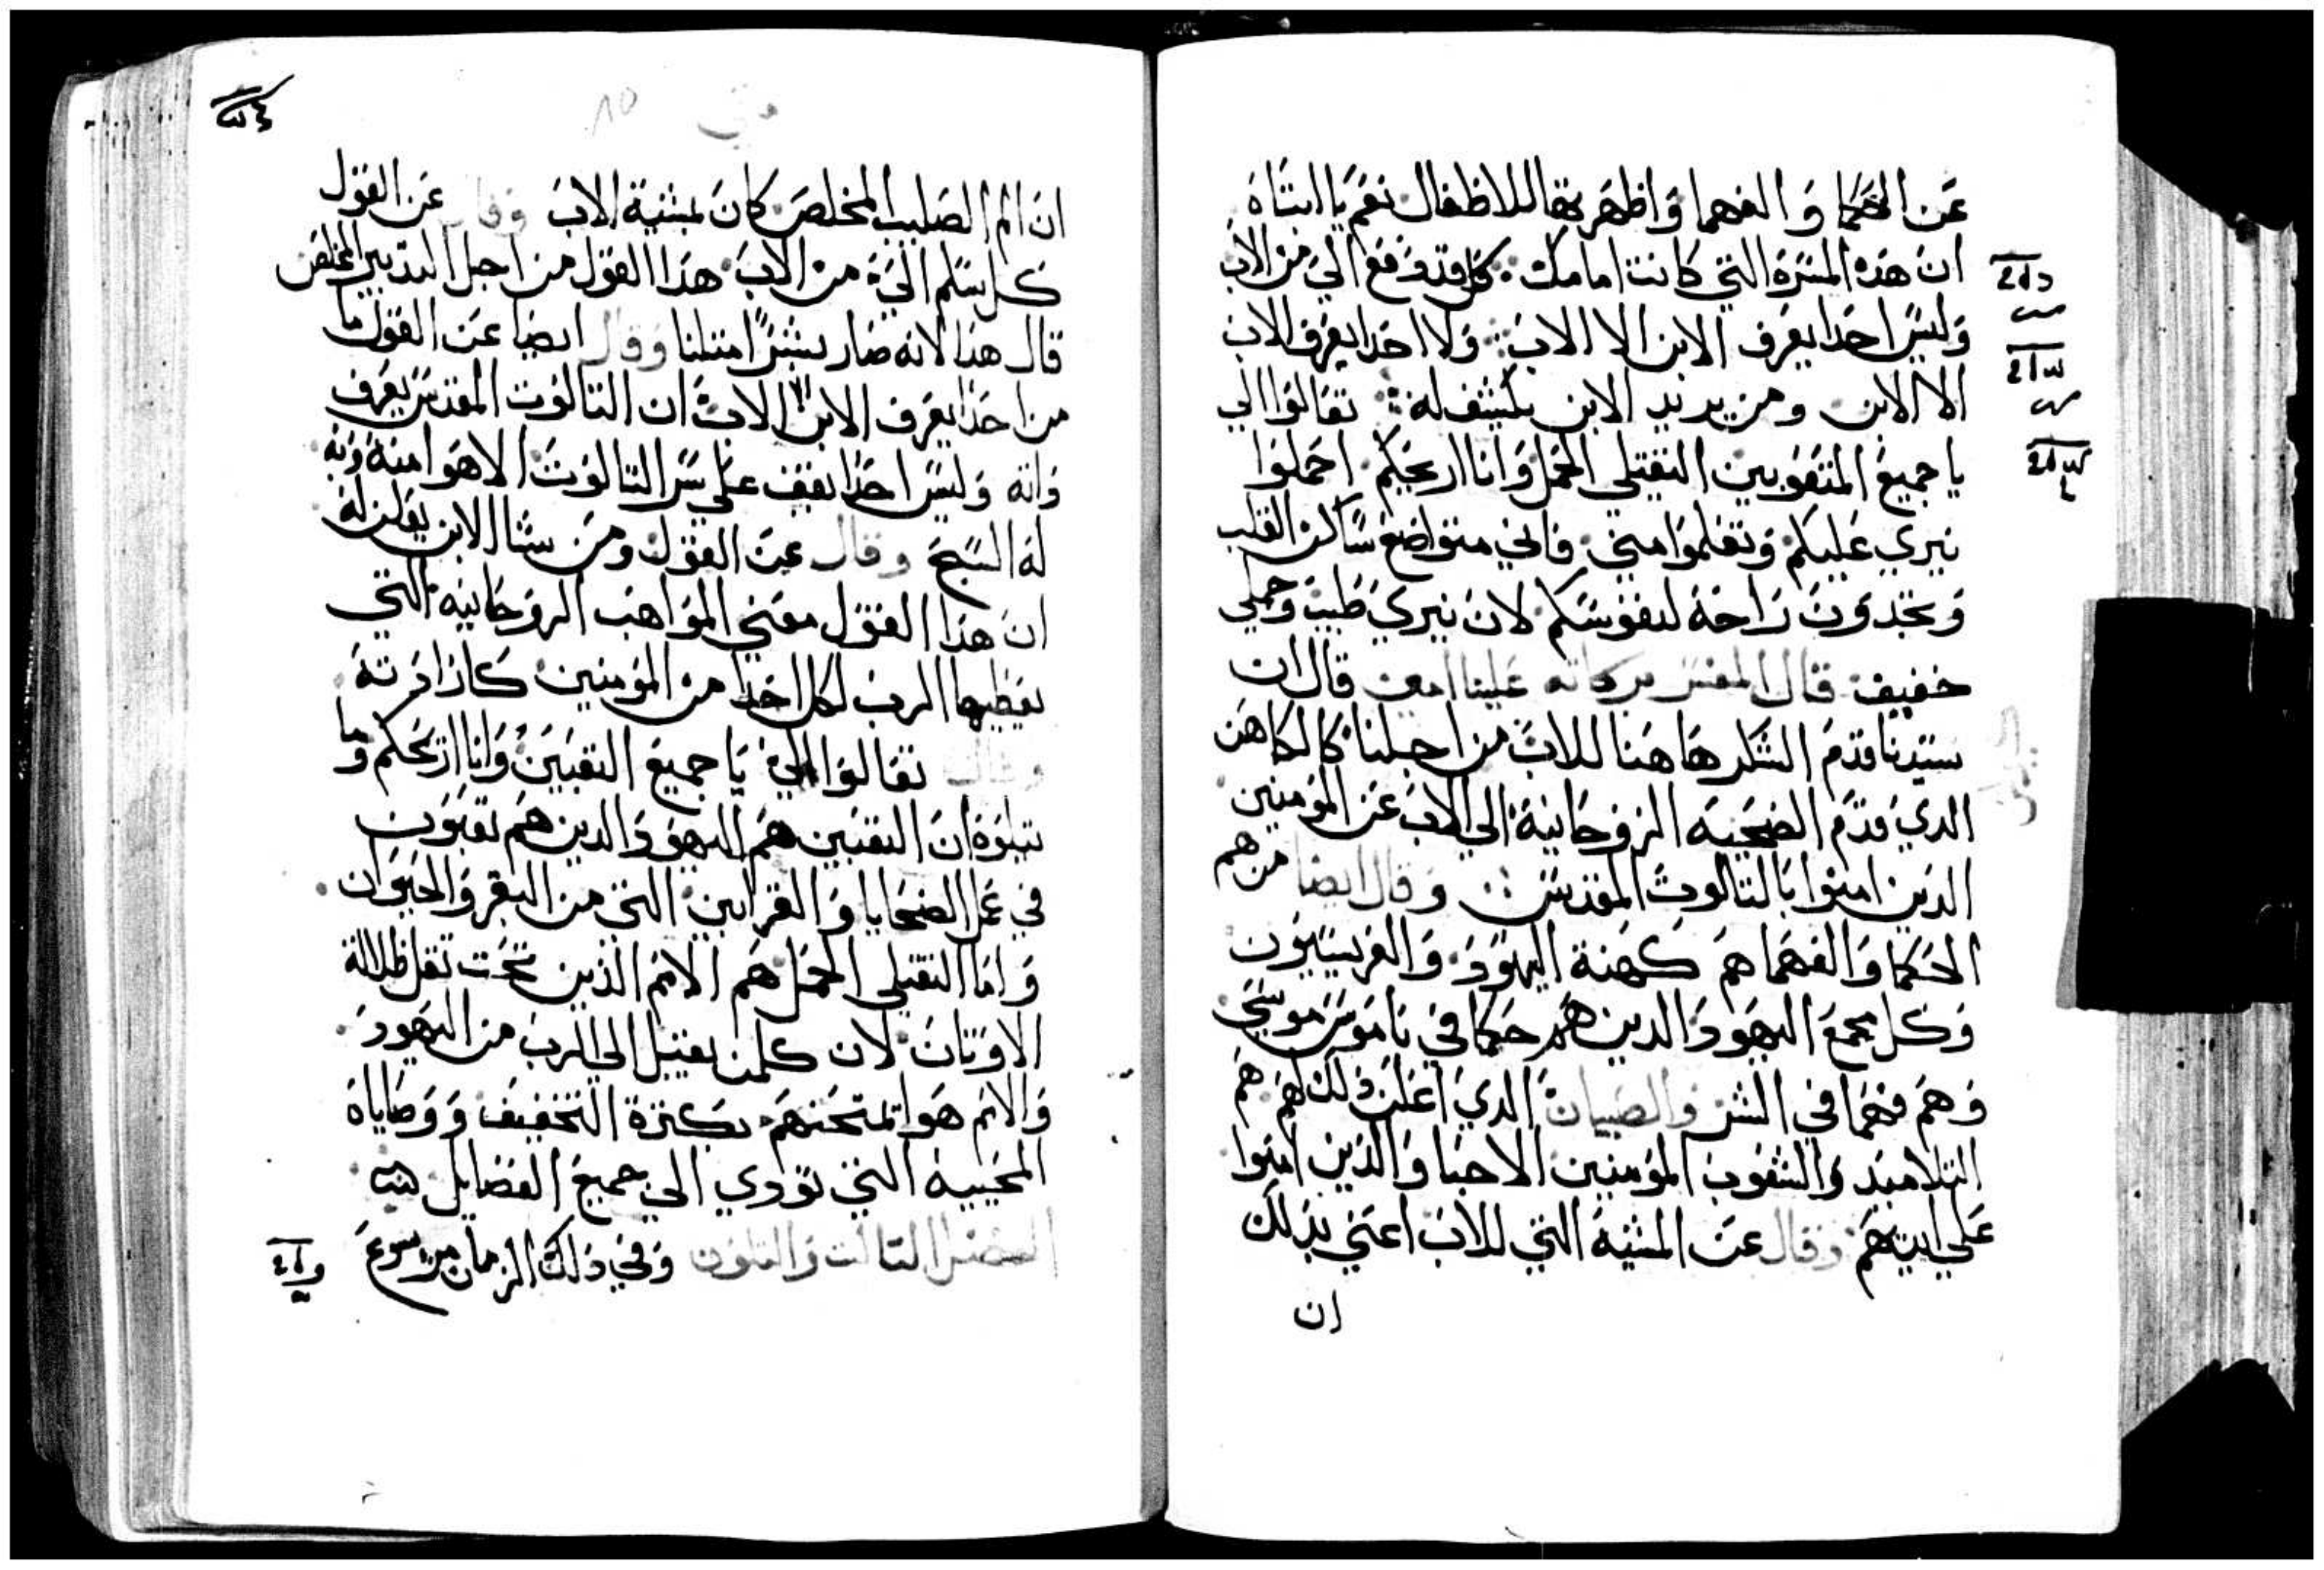 عن الحكما والفهما واظهرتها للاطفال نعم يا ابتاه
ان هذه المسرة التي كانت امامك كل قد دفع الي من الاب
وليس احدا يعرف الابن الا الاب ولا احدا يعرف الاب
الا الابن ومن يريد الابن يكشف له تعالوا الي
يا جميع المتعوبين الثقيلي الحمل وانا اريحكم احملوا
نيري عليكم وتعلموا مني فاني متواضع ساكن القلب
وتجدون راحة لنفوسكم لان نيري طيب وحملي
خفيف قال المفسر بركاته علينا امين قال ان
سيدنا قدم الشكر هاهنا للاب من اجلنا كالكاهن
الدي قدم الضحية الروحانية الي الاب عن المومنين
الدين امنوا بالتالوت المقدس وقال ايضا من هم
الحكما والفهما هم كهنة اليهود والفريسيون
وكل مجمع اليهود الدين هم حكما في ناموس موسي
وهم فهما في الشر والصبيان الدي اعلن دلك لهم هم
التلاميد والشعوب المومنين الاحبا والدين امنوا
علي ايديهم وقال عن المشية التي للاب اعني بدلك
ان
متي ٨٥
ان الم الصليب المخلص كان بمشية الاب وقال عن القول
كل سلم الي من الاب هدا القول من اجل التدبير المخلص
قال هدا لانه صار بشرا متلنا وقال ايضا عن القول ما
من احدا يعرف الابن الا الاب ان التالوت المقدس يعرف
داته وليس احدا يقف علي سر التالوت الا هو
له السبح وقال عن القول ومن شا الابن يعلن له
ان هدا القول معني المواهب الروحانية التي
يعطيها الرب لكل احدا من المومنين
وقال تعالوا الي يا جميع التعبين وانا اريحكم وما
يتلوه ان التعبين هم اليهود الدين هم تعبون
في عمل الضحايا والقرابين التي من البقر والحيوان
واما الثقيلي الحمل هم الامم الدين تحت تقل ظلالة
الاوتان لان كلمن يقبل الي الرب من اليهود
والامم هوا يمتحنهم بكترة التخفيف ووصاياه
المحيية التي تودي الي جميع الفضايل
الفصل التالت والتلتون وفي دلك الزمان مر يسوع